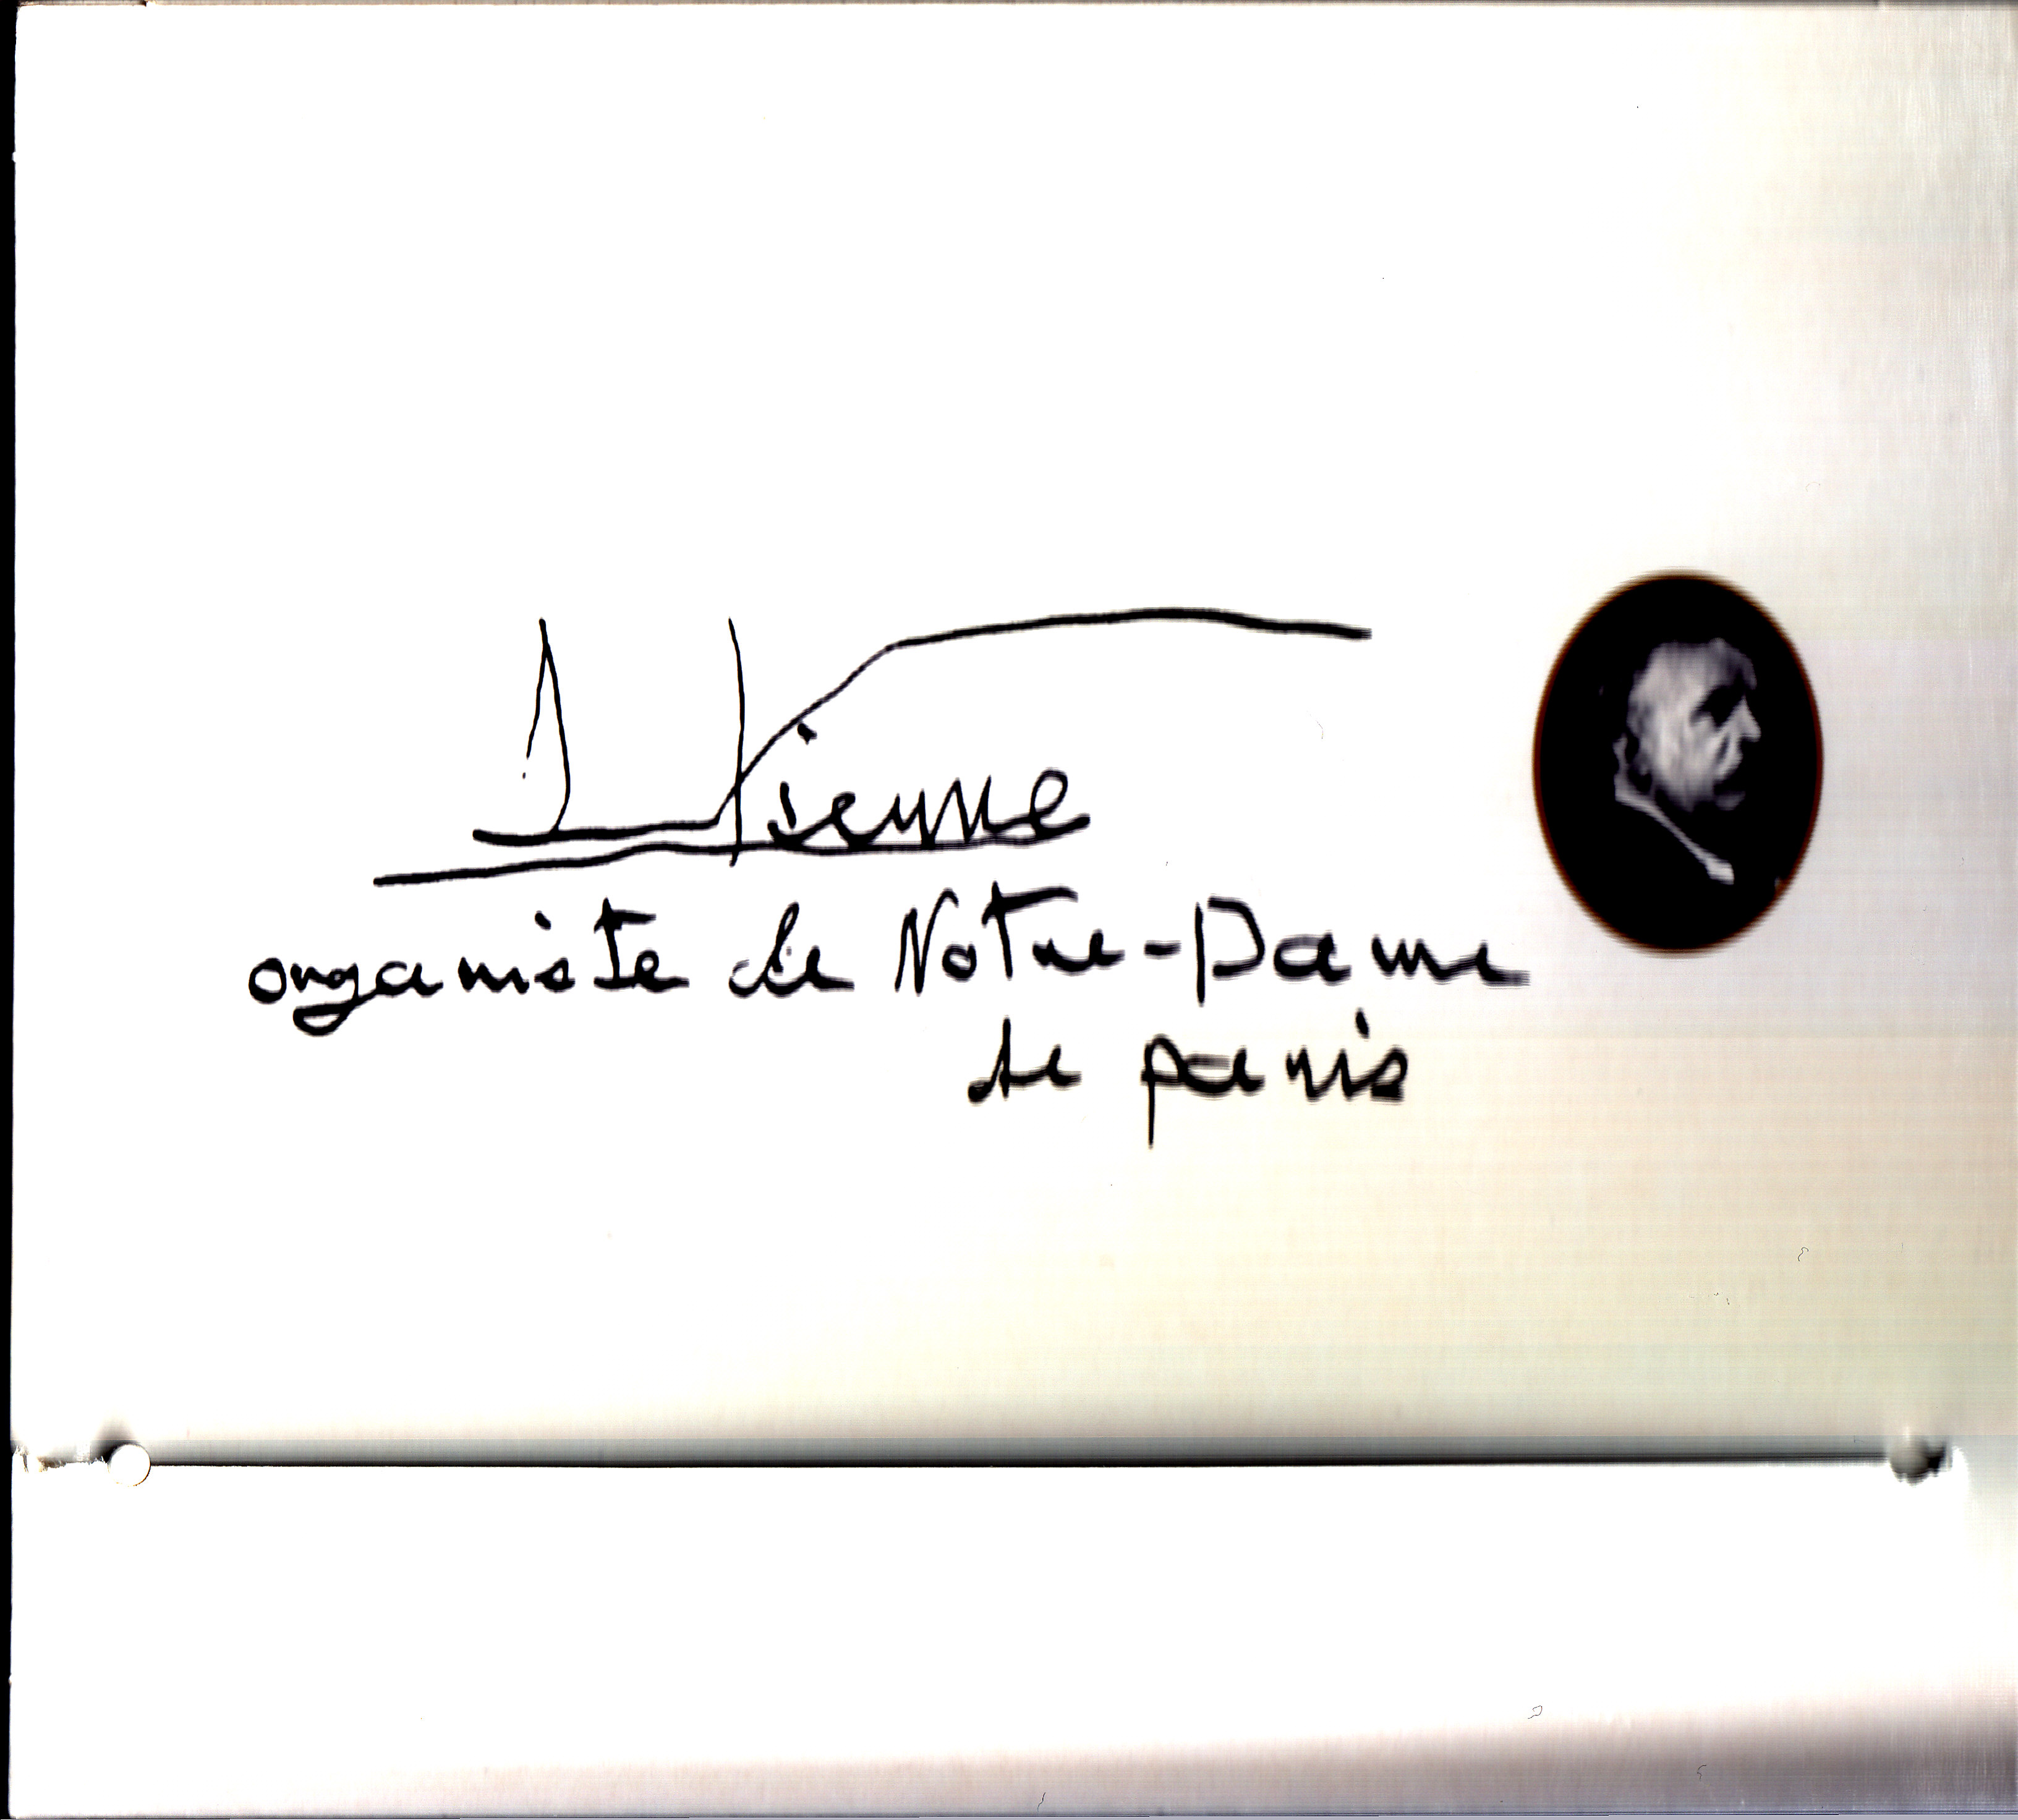 L Vierne
organiste de Notre-Dame
de paris